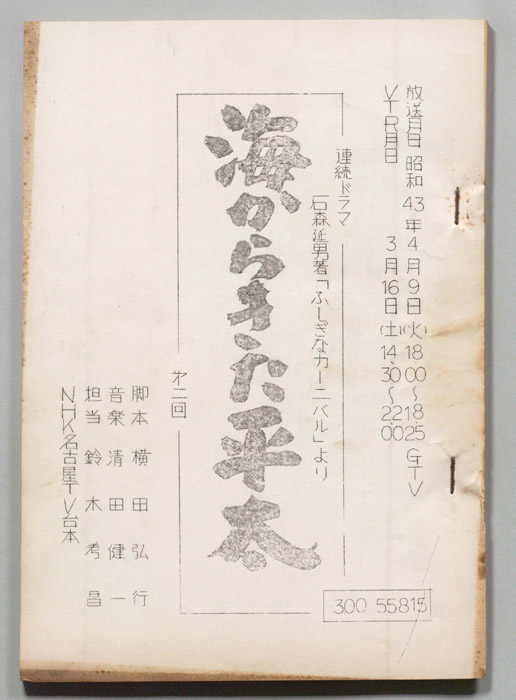 放送月日 昭和43年4月9日(火)18.00〜18.25 GTV
VTR月日 3月16日(土)14.30〜22.00
連続ドラマ
石森延男著「ふしぎなカーニバル」より
海からきた平太
第二回
脚本 横田弘行
音楽 清田健一
担当 鈴木考昌
NHK名古屋TV台本
300 55815